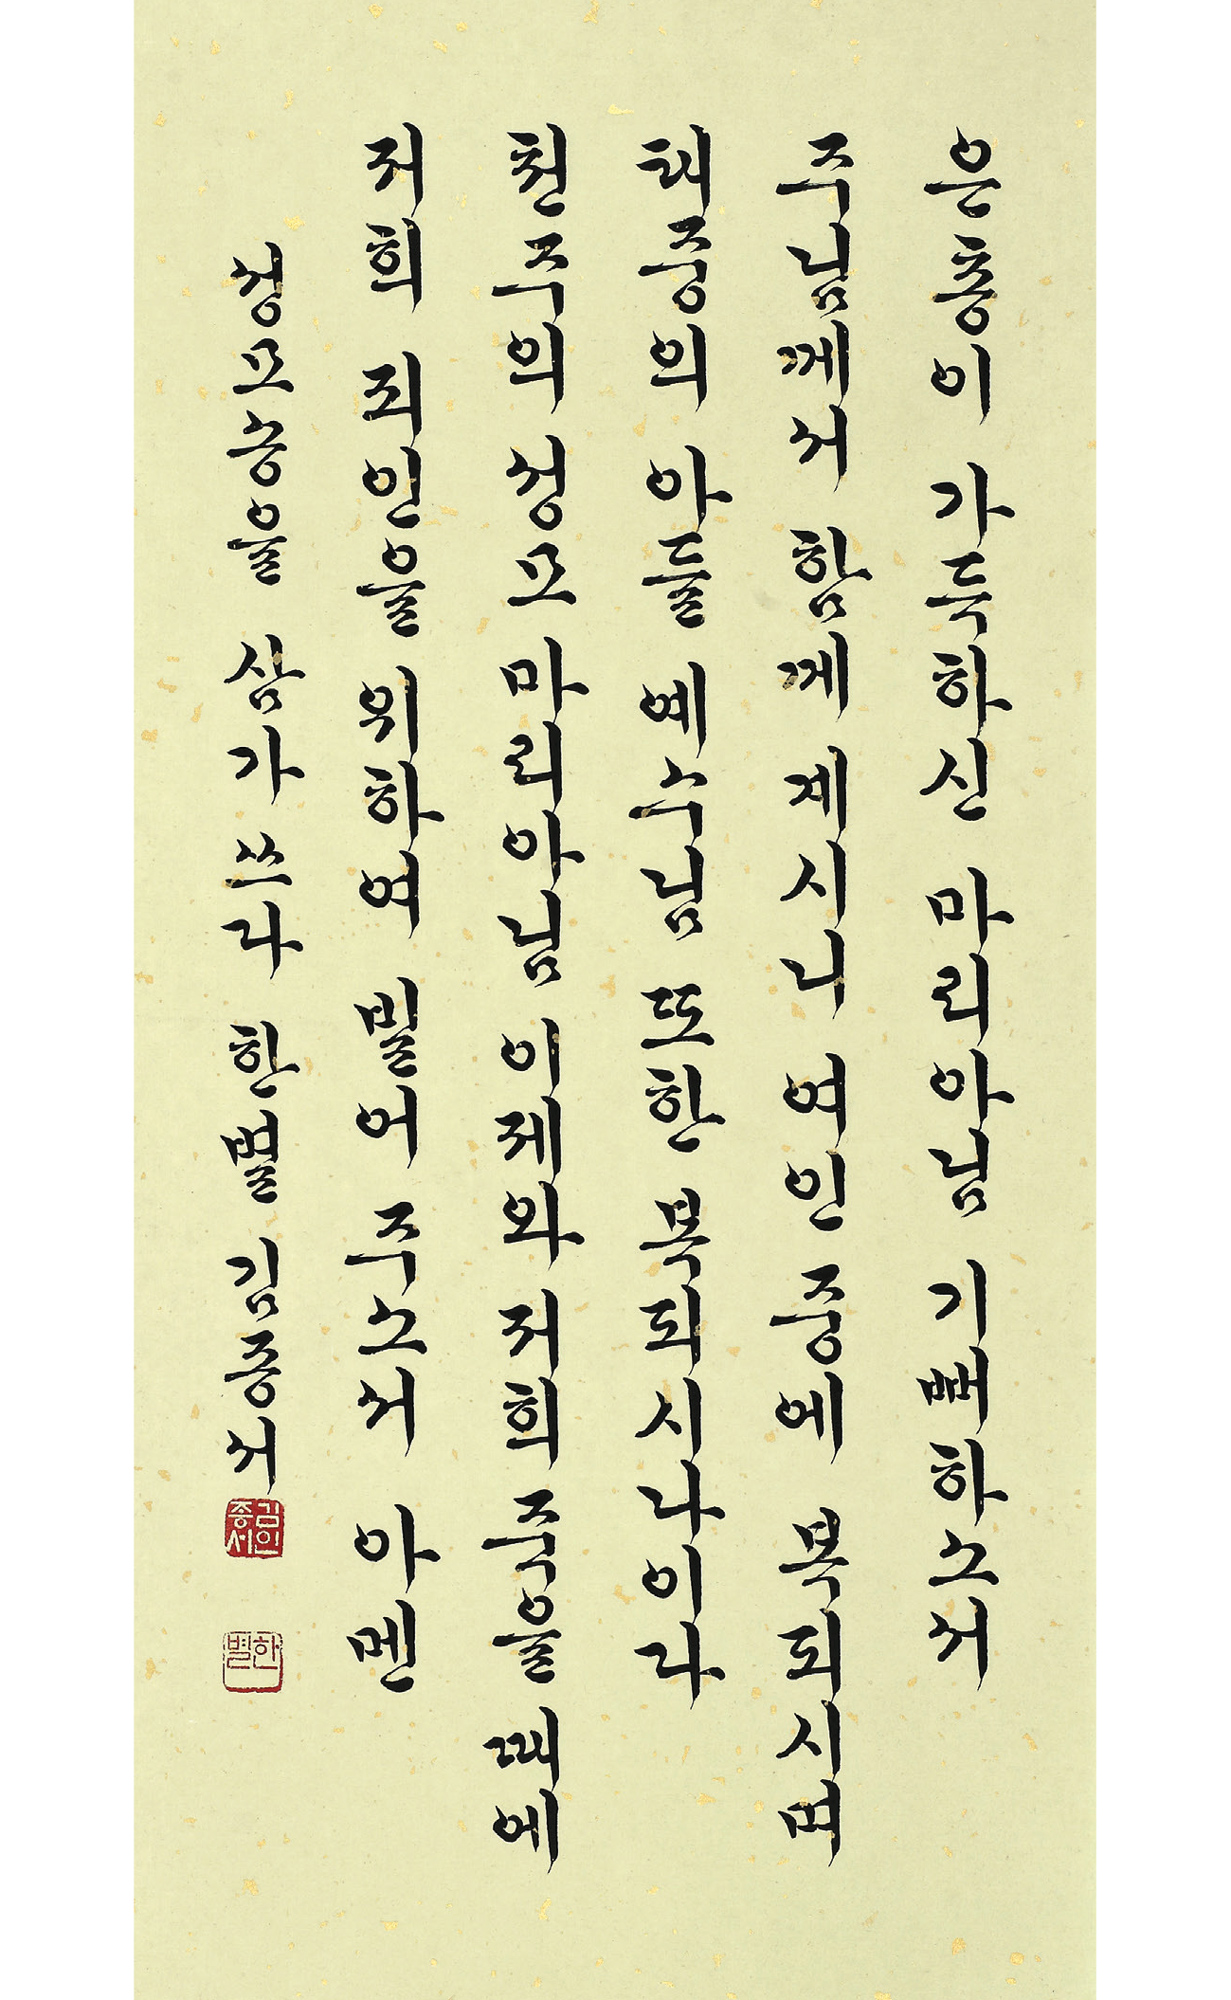 은총이 가득하신 마리아님 기뻐하소서
주님께서 함께 계시니 여인 중에 복되시며
태중의 아들 예수님 또한 복되시나이다
천주의 성모 마리아님 이제와 저희 죽을 때에
저희 죄인을 위하여 빌어 주소서 아멘
성모송을 삼가 쓰다 한별 김종서
김종서인
한별